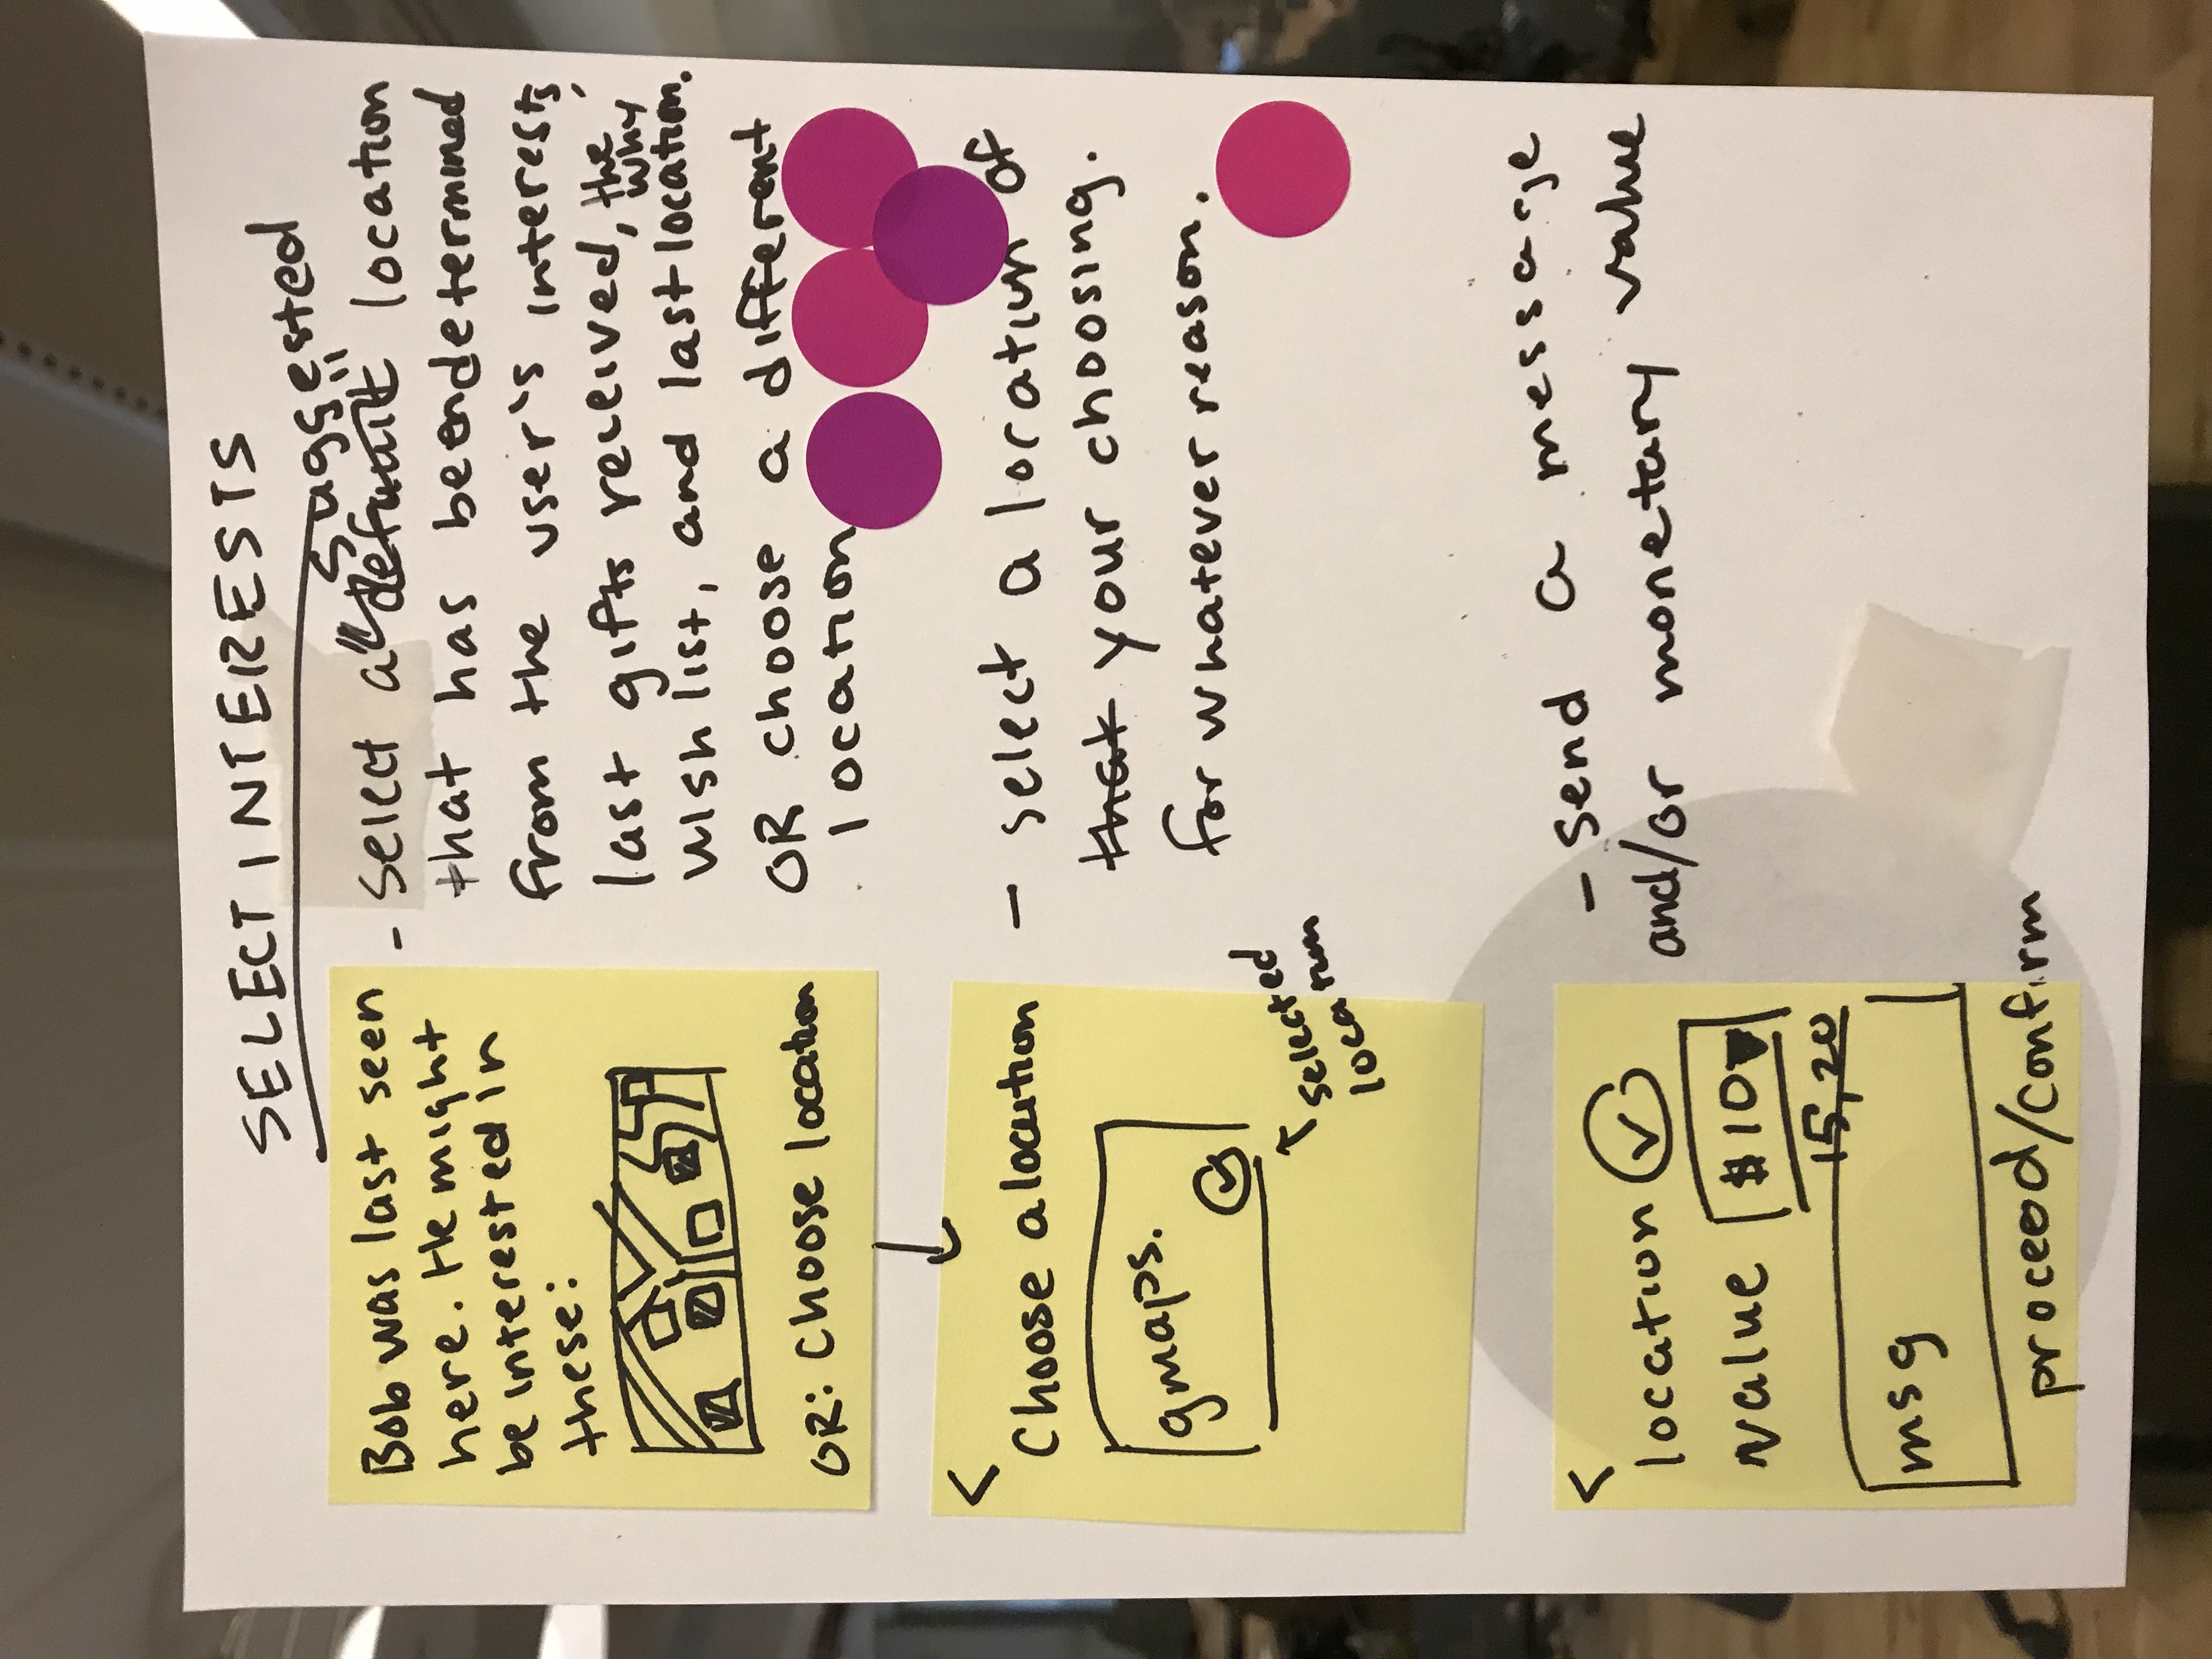 SELECT INTERESTS
Bob was last seen
here. He might
be interested in
these:
OR: Choose location
suggested
- Select a "default" location
that has been determined
from the user's interests,
last gifts received, the
why
wish list, and last location.
OR choose a different
location
<
Choose a location
gmaps.
selected
location
- select a location of
that your choosing.
for whatever reason.
<
location
value $10
15, 20
msg
proceed/confirm
- Send a message
and/or monetary value